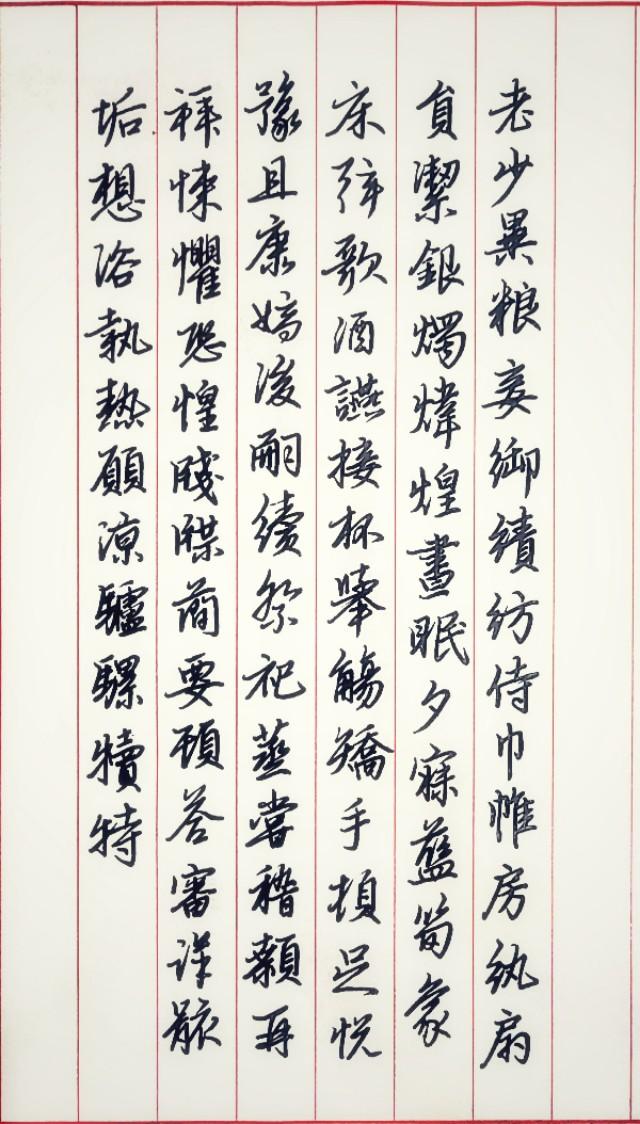 老少異粮妾御績紡侍巾帷房紈扇
員潔銀燭煒煌晝眠夕寐藍筍象
床弦歌酒讌接杯舉觴矯手頓足悅
豫且康嫡後嗣續祭祀蒸嘗稽顙再
拜悚懼恐惶牋牒簡要顧答審詳骸
垢想浴執熱願涼驢騾犢特